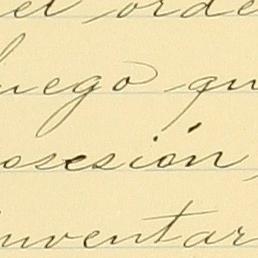 el orde
uego qu
osesión,
nventar